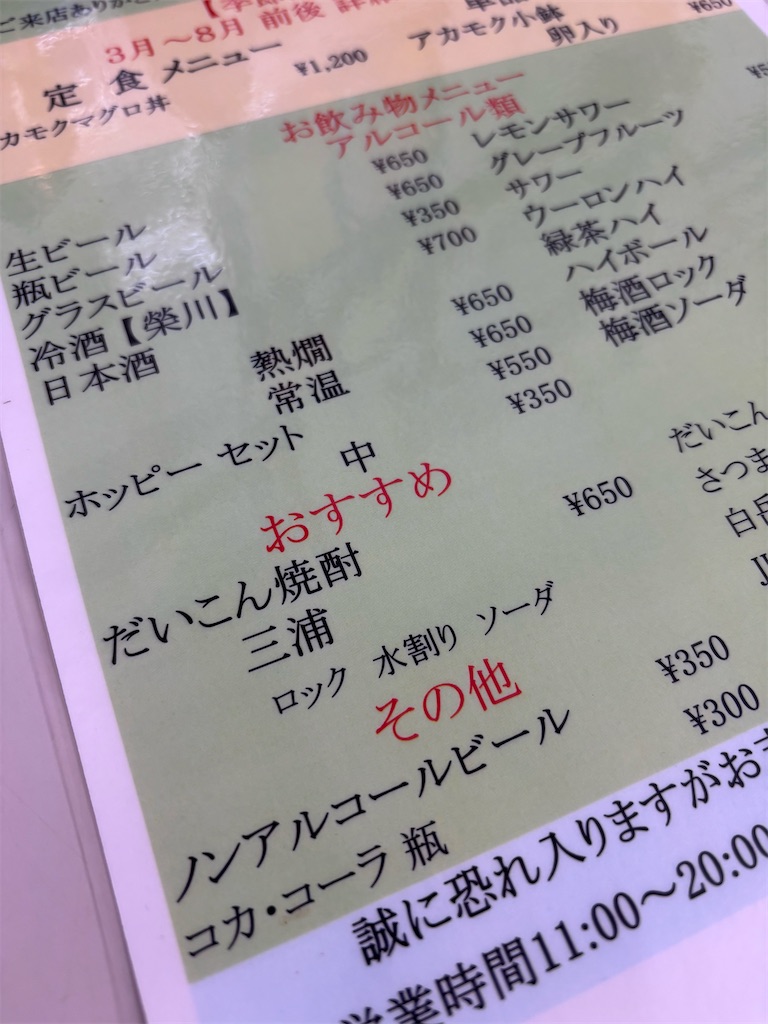 ご来店ありがと
3月～8月 前後
定 食 メニュー
カモクマグロ丼 ¥1,200
アカモク小鉢
卵入り ¥650
お飲み物メニュー
アルコール類
生ビール ¥650
瓶ビール ¥650
グラスビール ¥350
冷酒【榮川】 ¥700
日本酒 熱燗 ¥650
常温 ¥650
ホッピー セット ¥550
中 ¥350
レモンサワー
グレープフルーツ
サワー
ウーロンハイ
緑茶ハイ
ハイボール
梅酒ロック
梅酒ソーダ
おすすめ
だいこん焼酎 ¥650
三浦
ロック 水割り ソーダ
だいこん
さつま
白岳
その他
ノンアルコールビール ¥350
コカ・コーラ 瓶 ¥300
誠に恐れ入りますがお
営業時間11:00～20:00